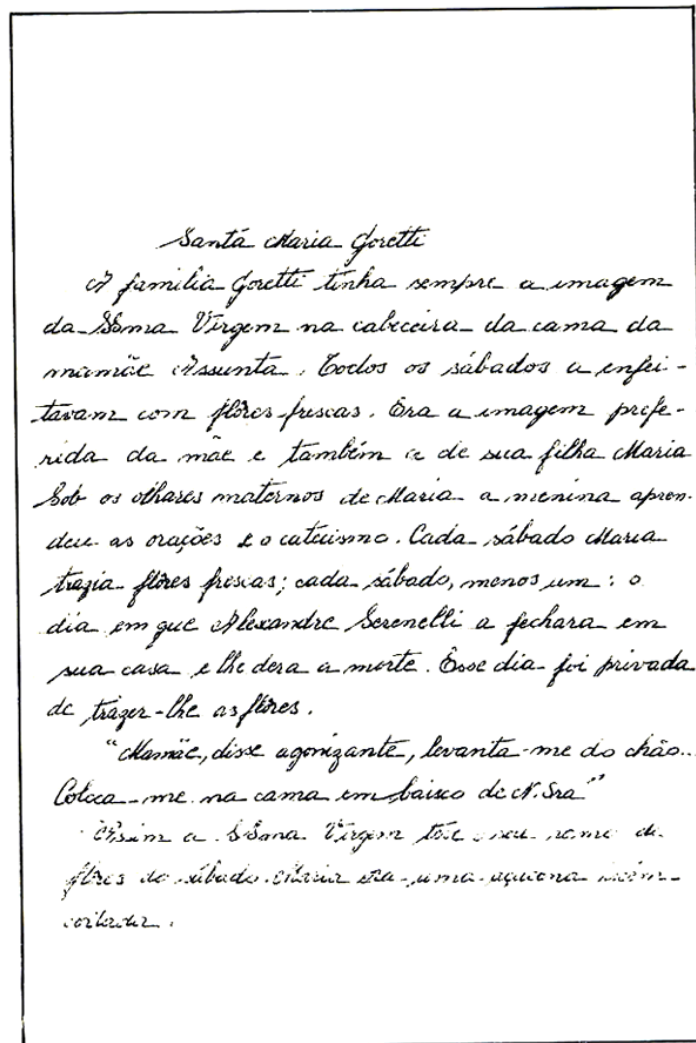 Santa Maria Goretti
A familia Goretti tinha sempre a imagem
da SSma Virgem na cabeceira da cama da
mamãe Assunta. Todos os sábados a enfei-
tavam com flôres frescas. Era a imagem prefe-
rida da mãe e também a de sua filha Maria
Sob os olhares maternos de Maria a menina apren-
deu as orações e o catecismo. Cada sábado Maria
trazia flôres frescas; cada sábado, menos um: o
dia em que Alexandre Serenelli a fechara em
sua casa e lhe dera a morte. Esse dia foi privada
de trazer-lhe as flôres.
"Mamãe, disse agonizante, levanta-me do chão...
Coloca-me na cama em baixo de N. Sra"
Assim a SSma Virgem teve o seu ramo de
flôres do sábado. Maria era uma açucena recém-
cortada.